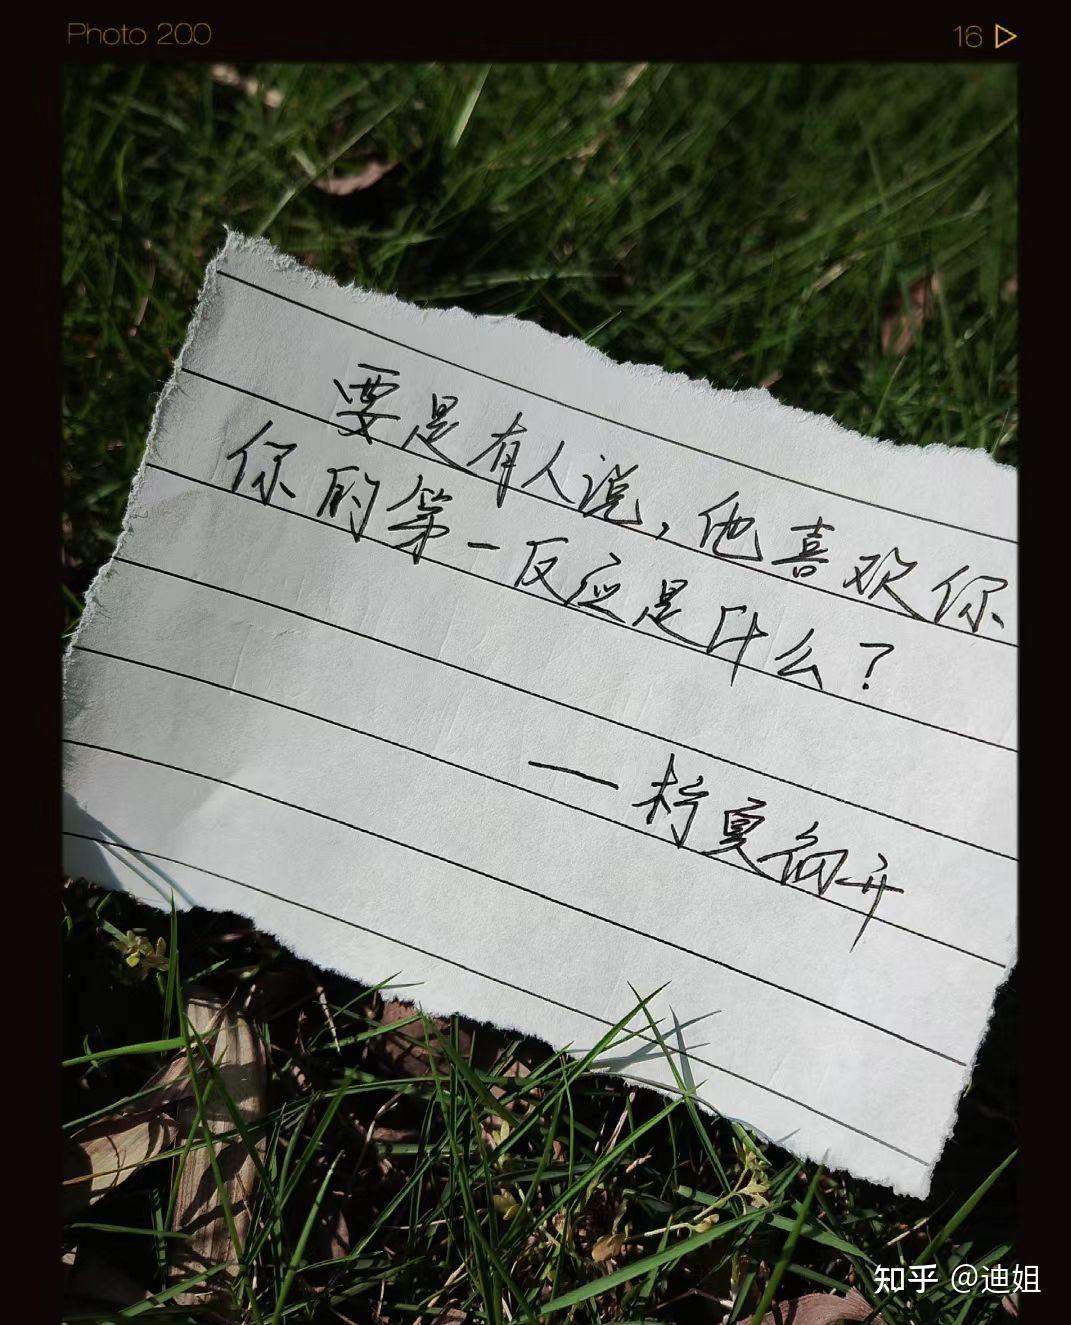 Photo 200
16
要是有人说，他喜欢你
你的第一反应是什么？
—柠夏初开
知乎 @迪姐